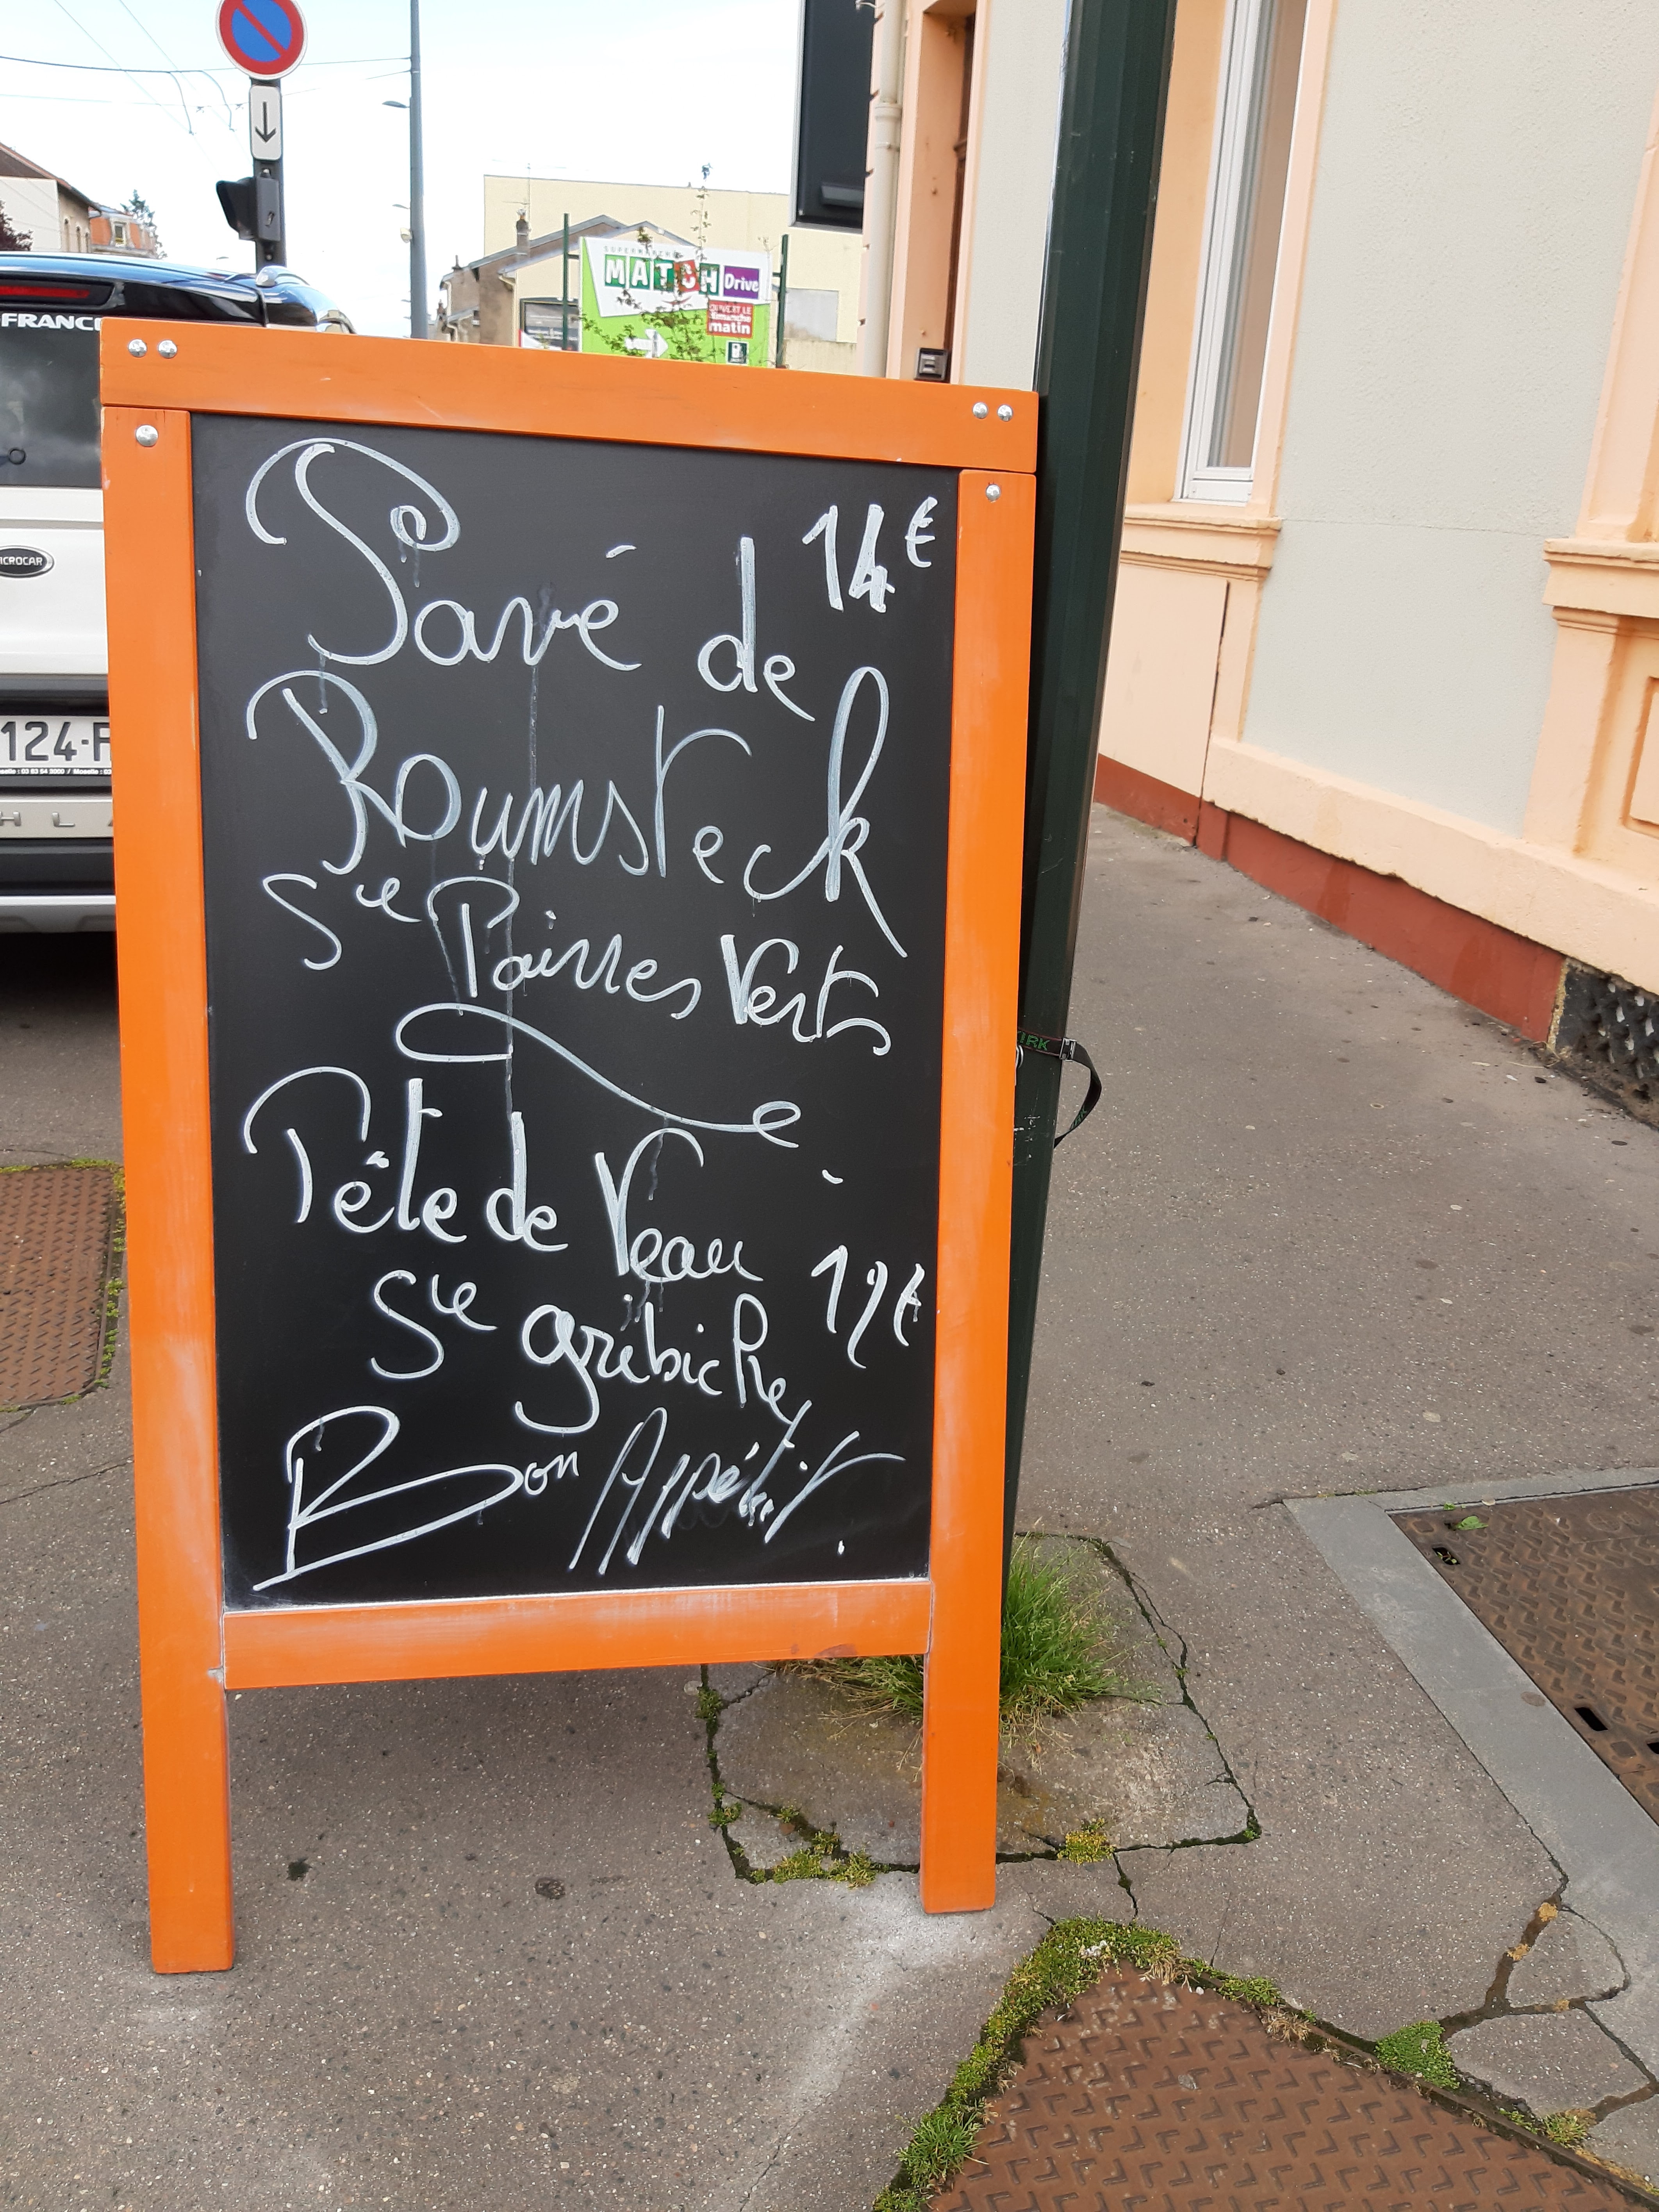 SUPERMARCHÉ
MATCH Drive
OUVERT LE
dimanche
matin
FRANCE
MICROCAR
124-F
HLA
IRK
14€
Pavé de
Rumsteck
Sce Poivres Verts
Tête de Veau
12€
Sce gribiche
Bon Appétit.